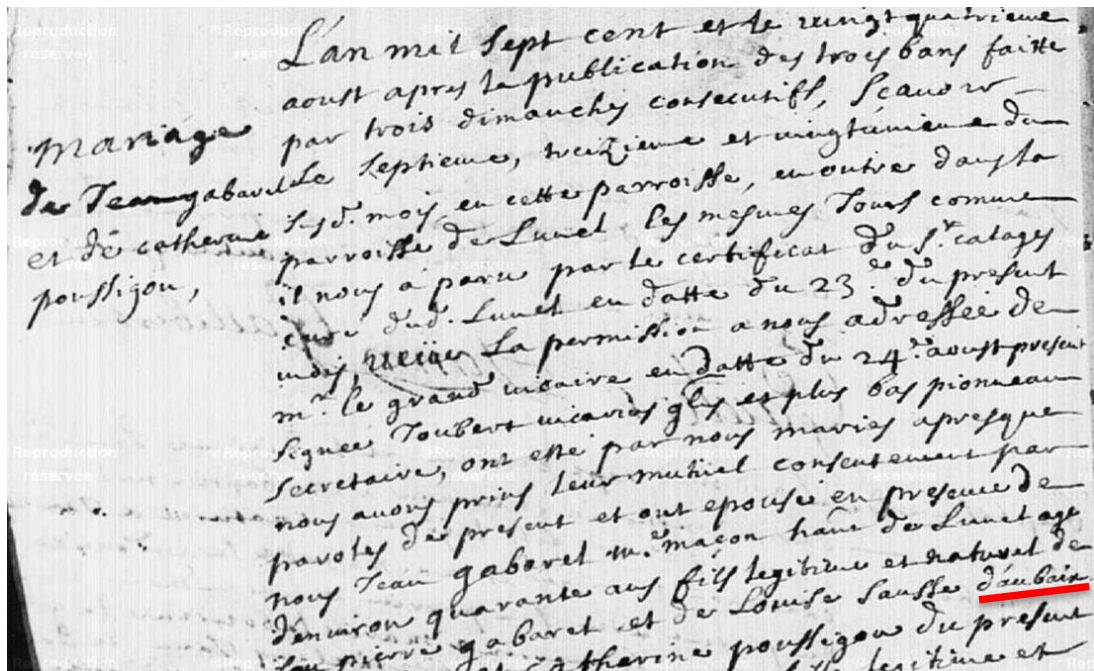 L'an mil sept cent et le vingt quatrieme
aoust apres la publication des trois bans faitte
par trois dimanches consecutifs, sçavoir
mariage
de Jean gabaret
et de catherine
poussigou,
Le septieme, treizieme et vingtunieme du
susd. mois en cette parroisse, en outre dans la
parroisse de Lunel les mesmes Jours comme
il nous a paru par le certificat du Sr. catages
curé dud. Lunel en datte du 23e. du present
mois, La permission a nous adressée de
mr. le grand vicaire en datte du 24e. aoust present
signée Joubert vicarius glis et plus bas pionneau
secretaire, ont esté par nous mariés apres que
nous avons prins leur mutuel consentement par
paroles de present et ont epousé en presence de
nous Jean gabaret me. maçon hant. de Lunel agé
d'environ quarante ans fils legitime et naturel de
feu pierre gabaret et de Louise Sausse d'aubais
catherine poussigou du present
legitime et